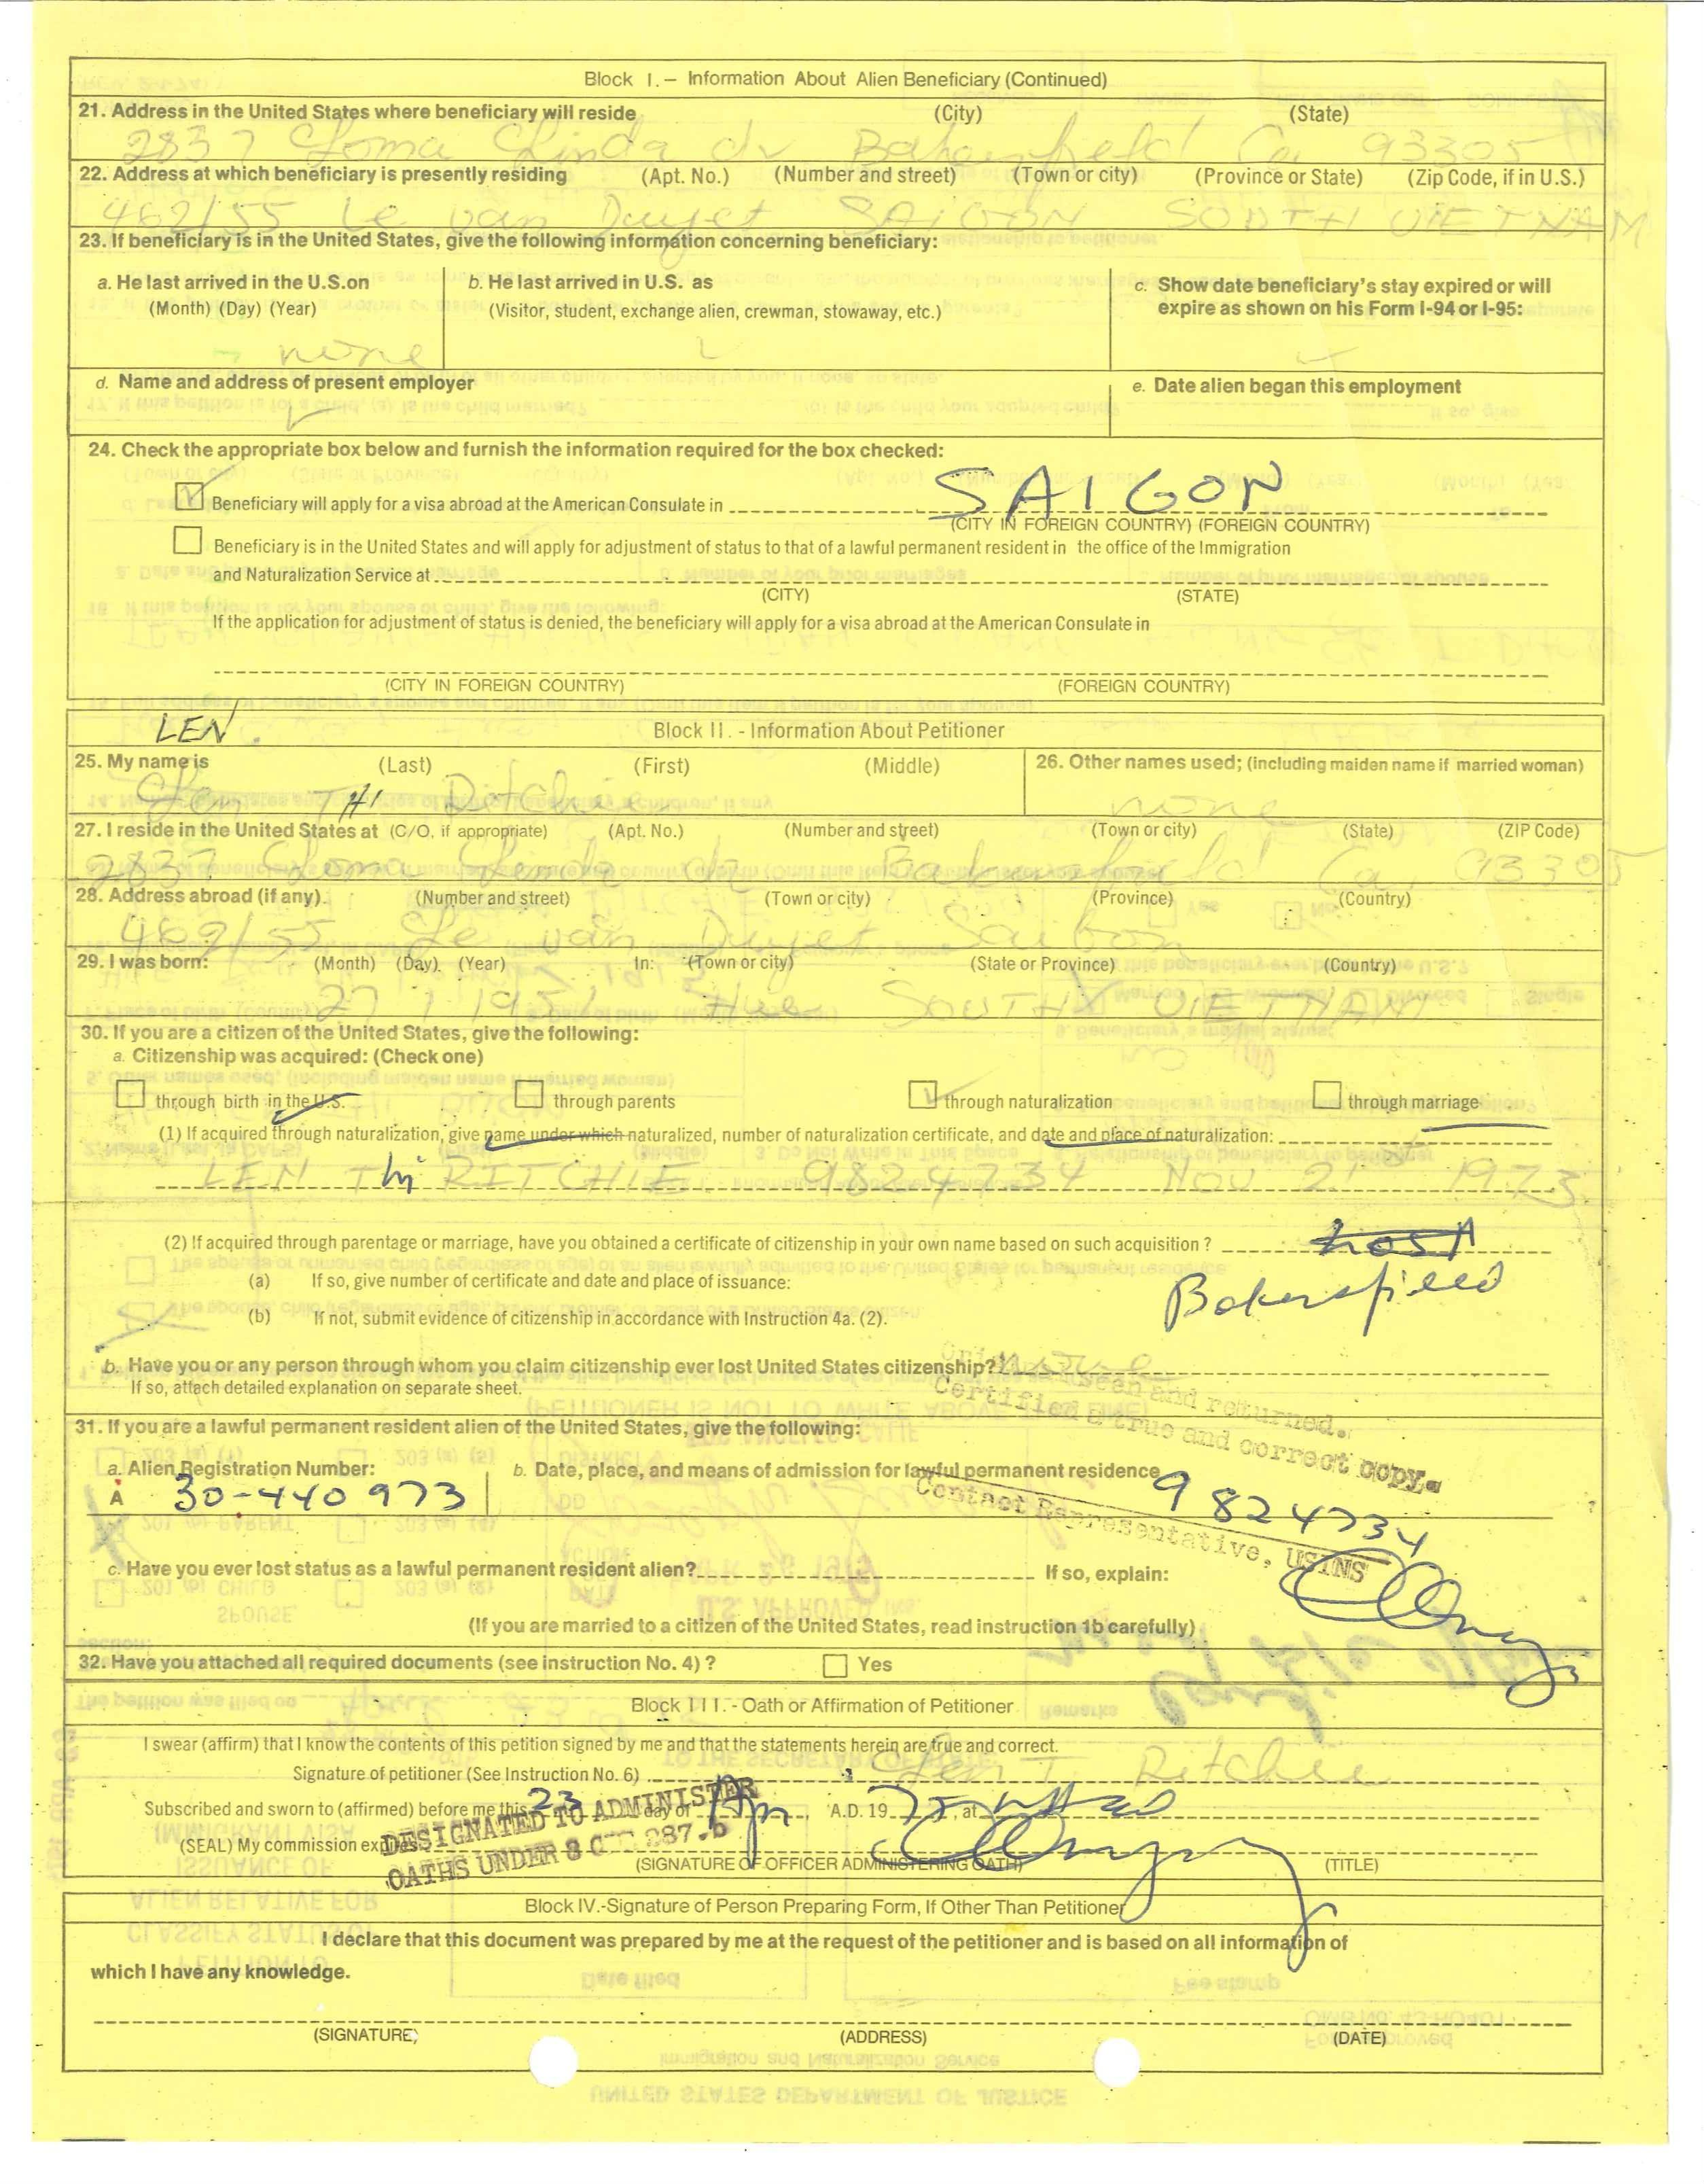 Block I. - Information About Alien Beneficiary (Continued)
21. Address in the United States where beneficiary will reside (City) (State)
2837 Loma Linda dr Bakersfield Ca. 93305
22. Address at which beneficiary is presently residing (Apt. No.) (Number and street) (Town or city) (Province or State) (Zip Code, if in U.S.)
462/55 Le van Duyet SAIGON SOUTH VIETNAM
23. If beneficiary is in the United States, give the following information concerning beneficiary:
a. He last arrived in the U.S. on
(Month) (Day) (Year)
none
b. He last arrived in U.S. as
(Visitor, student, exchange alien, crewman, stowaway, etc.)
c. Show date beneficiary's stay expired or will
expire as shown on his Form I-94 or I-95:
d. Name and address of present employer
e. Date alien began this employment
24. Check the appropriate box below and furnish the information required for the box checked:
Beneficiary will apply for a visa abroad at the American Consulate in SAIGON
(CITY IN FOREIGN COUNTRY) (FOREIGN COUNTRY)
Beneficiary is in the United States and will apply for adjustment of status to that of a lawful permanent resident in the office of the Immigration
and Naturalization Service at
(CITY) (STATE)
If the application for adjustment of status is denied, the beneficiary will apply for a visa abroad at the American Consulate in
(CITY IN FOREIGN COUNTRY) (FOREIGN COUNTRY)
LEN
Block II. - Information About Petitioner
25. My name is (Last) (First) (Middle)
THI Ritchie
26. Other names used; (including maiden name if married woman)
none
27. I reside in the United States at (C/O, if appropriate) (Apt. No.) (Number and street) (Town or city) (State) (ZIP Code)
2837 Loma Linda dr Bakersfield Ca. 93305
28. Address abroad (if any). (Number and street) (Town or city) (Province) (Country)
462/55 Le van Duyet Saigon
29. I was born: (Month) (Day). (Year) In: (Town or city) (State or Province) (Country)
27 1 1951 Hue SOUTH VIETNAM
30. If you are a citizen of the United States, give the following:
a. Citizenship was acquired: (Check one)
through birth in the U.S. through parents through naturalization through marriage
(1) If acquired through naturalization, give name under which naturalized, number of naturalization certificate, and date and place of naturalization:
LEN Thi RITCHIE 9824734 Nov 21 1973
(2) If acquired through parentage or marriage, have you obtained a certificate of citizenship in your own name based on such acquisition ?
(a) If so, give number of certificate and date and place of issuance:
Bakersfield
(b) If not, submit evidence of citizenship in accordance with Instruction 4a. (2).
b. Have you or any person through whom you claim citizenship ever lost United States citizenship?
If so, attach detailed explanation on separate sheet.
seen and returned.
Certified a true and correct copy.
31. If you are a lawful permanent resident alien of the United States, give the following:
a. Alien Registration Number:
A 30-440 973
b. Date, place, and means of admission for lawful permanent residence
9824734
Contact Representative, USINS
c. Have you ever lost status as a lawful permanent resident alien? If so, explain:
(If you are married to a citizen of the United States, read instruction 1b carefully)
32. Have you attached all required documents (see instruction No. 4) ? Yes
Block III. - Oath or Affirmation of Petitioner
I swear (affirm) that I know the contents of this petition signed by me and that the statements herein are true and correct.
Signature of petitioner (See Instruction No. 6) Len T. Ritchie
Subscribed and sworn to (affirmed) before me this 23 day of Apr, A.D. 19 75, at
(SEAL) My commission expires
DESIGNATED TO ADMINISTER
OATHS UNDER 8 287.
(SIGNATURE OF OFFICER ADMINISTERING OATH) (TITLE)
Block IV.-Signature of Person Preparing Form, If Other Than Petitioner
I declare that this document was prepared by me at the request of the petitioner and is based on all information of
which I have any knowledge.
(SIGNATURE) (ADDRESS) (DATE)